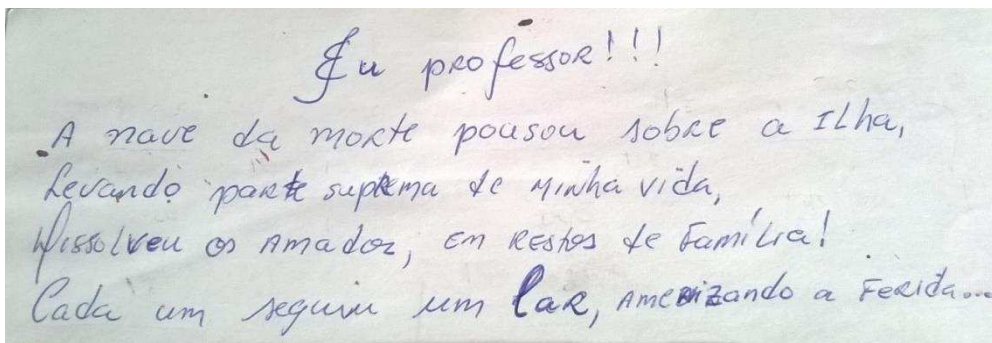 Eu professor!!!
A nave da morte pousou sobre a Ilha,
Levando parte suprema de minha vida,
Dissolveu os Amador, em restos de Família!
Cada um seguiu um lar, amenizando a Ferida...